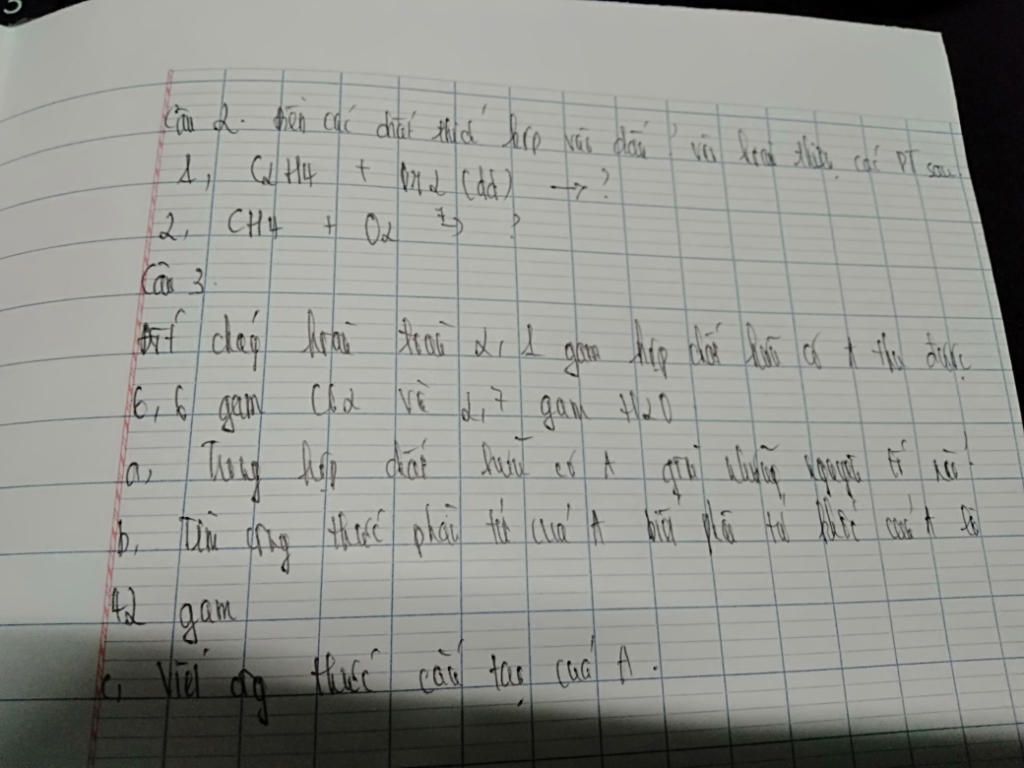 Câu 2. Điền các chất thích hợp vào dấu ? và hoàn thiện các PT sau
1, C2H4 + Br2 (dd) → ?
2, CH4 + O2 → ?
Câu 3.
Đốt cháy hoàn toàn 2,1 gam hợp chất hữu cơ A thu được
6,6 gam CO2 và 2,7 gam H2O
a, Trong hợp chất hữu cơ A gồm những nguyên tố nào?
b, Tìm công thức phân tử của A biết phân tử khối của A là
42 gam
c, Viết công thức cấu tạo của A.